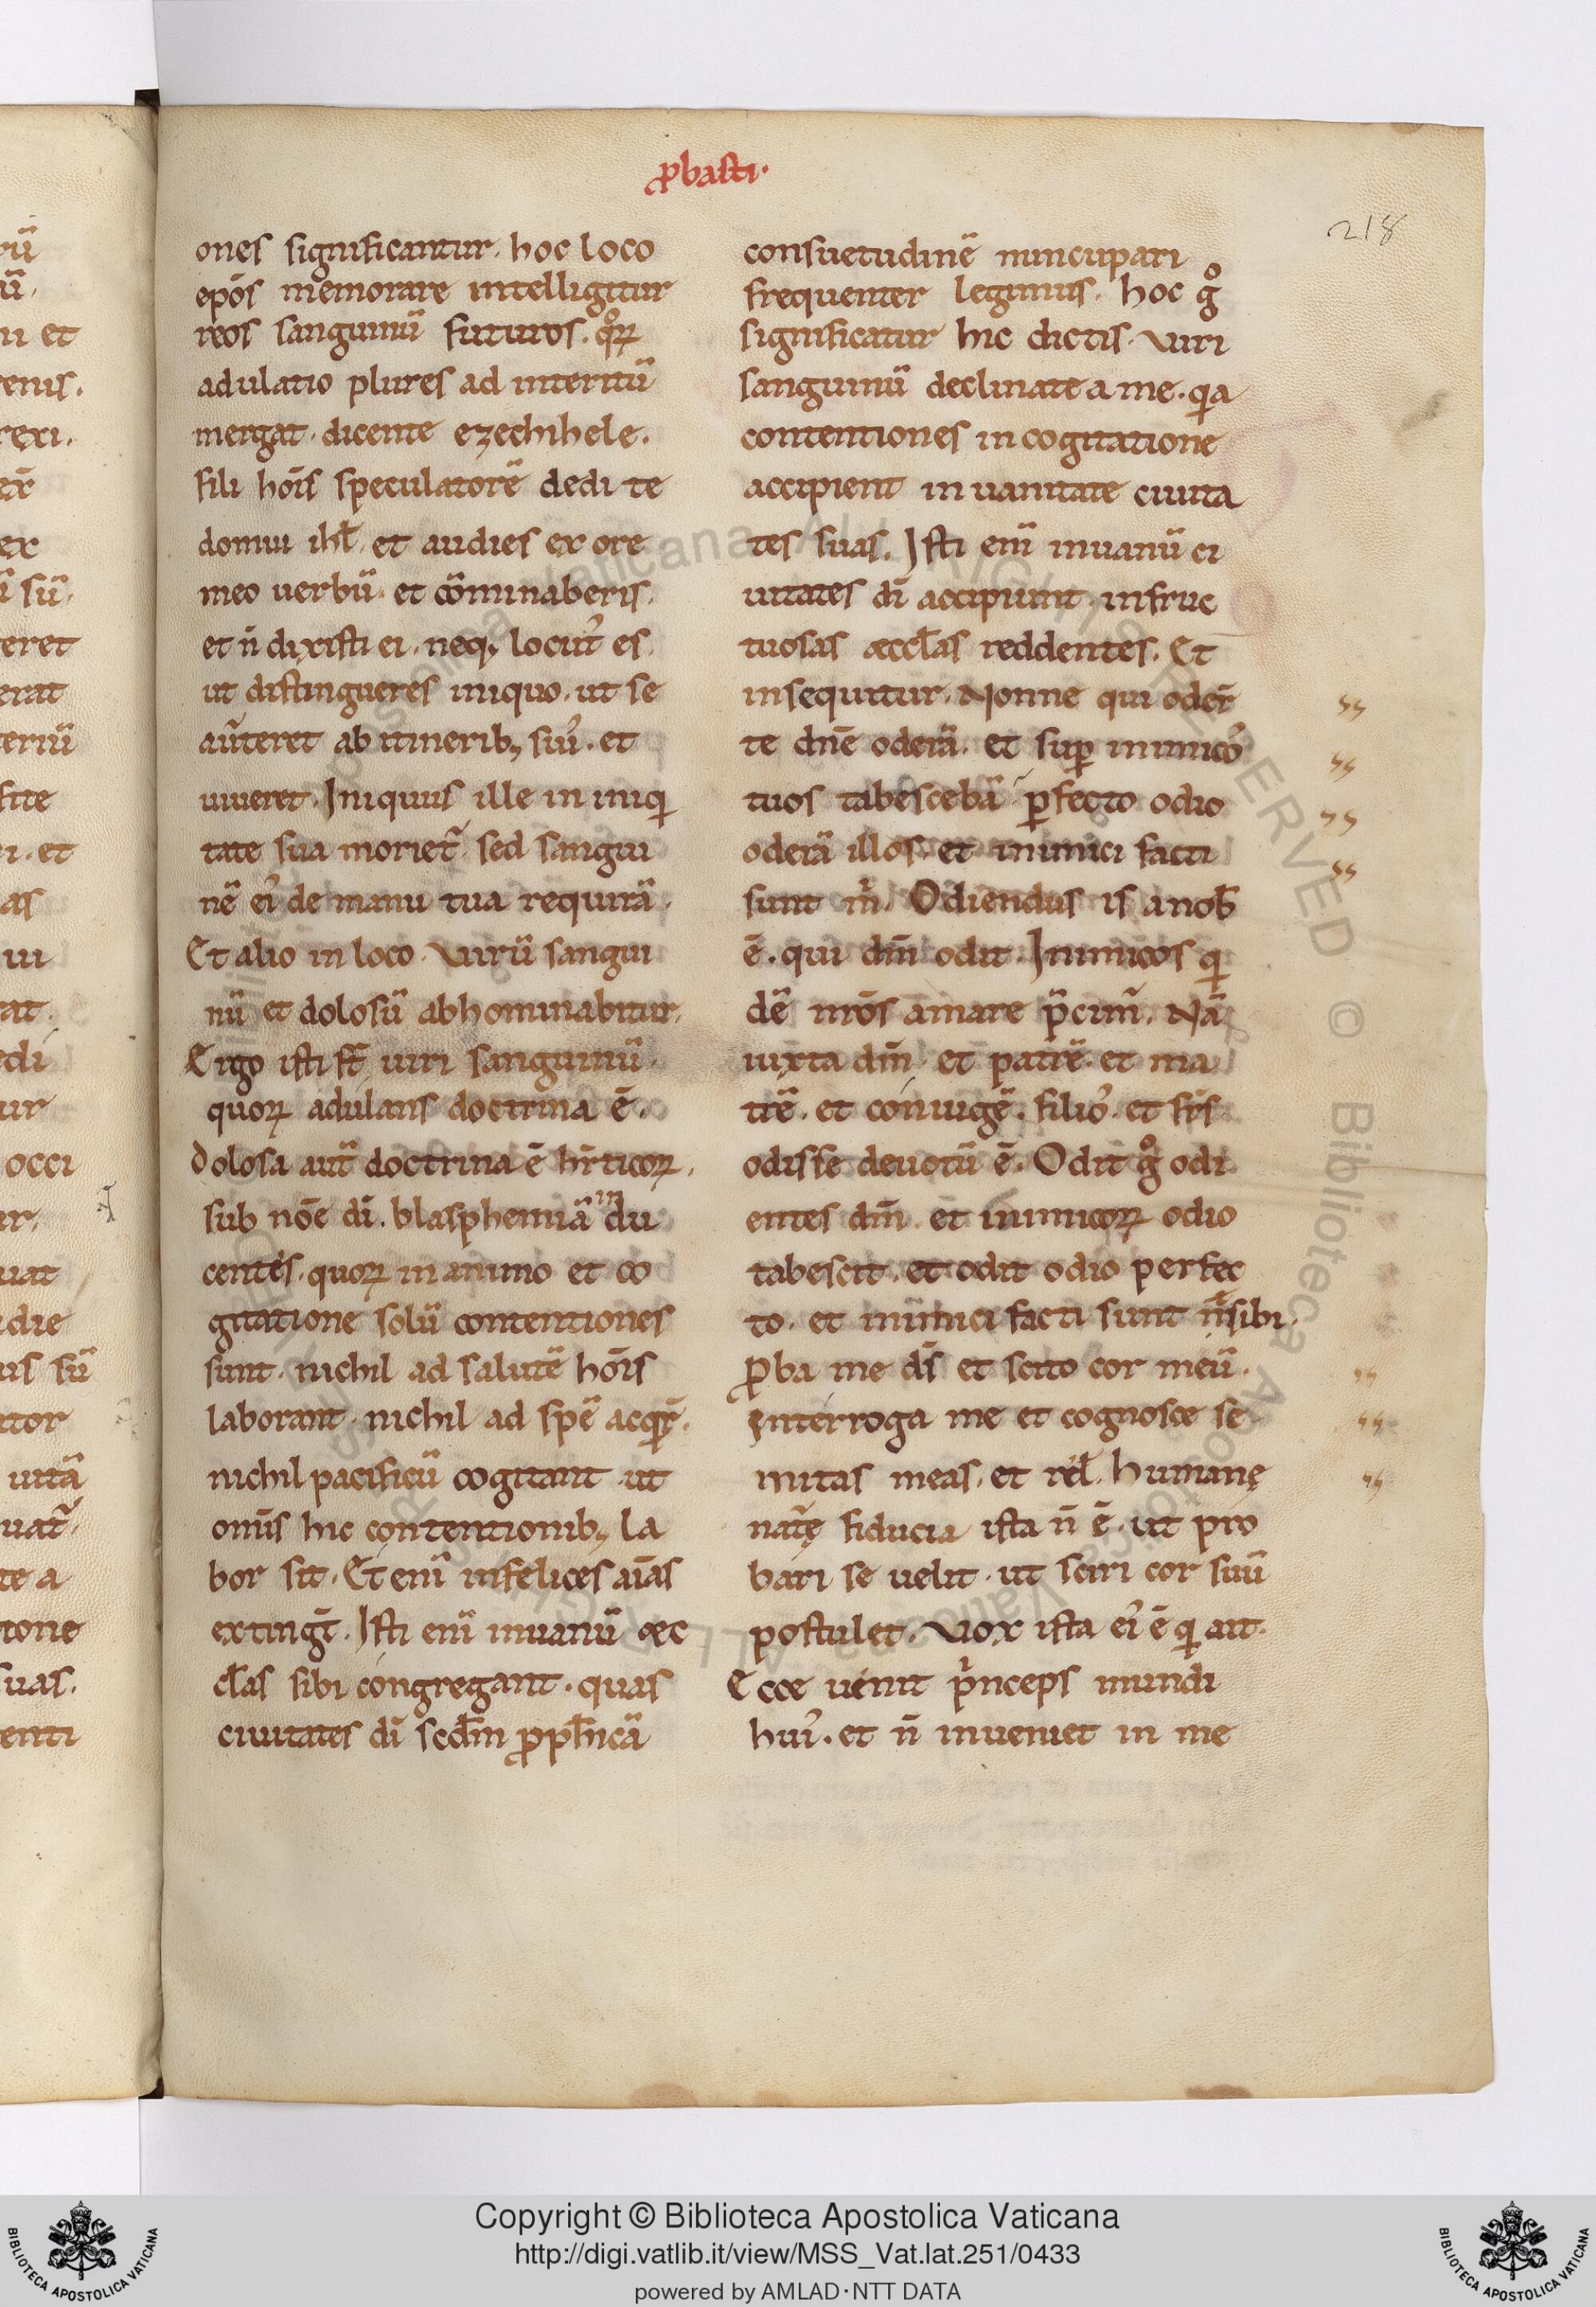 ꝓbasti.
218
ones significantur. hoc loco
ep̄os memorare intelligitur
reos sanguinū futuros. qͦꝝ
adulatio plures ad interitū
mergat. dicente ezechihele.
fili hōis speculatorē dedi te
domui ihl̄. et audies ex ore
meo uerbū. et cōminaberis.
et n̄ dixisti ei. neq; locut᾽ es
ut distingueres iniquo. ut se
aūteret ab itinerib; sui᾽. et
uiueret. Iniquus ille in iniqi
tate sua moriet᷑. sed sangui
nē ei᾽ de manu tua requirā.
Et alio in loco. Virū sangui
nū et dolosū abhominabitur.
Ergo isti s̄t uiri sanguinū.
quoꝝ adulans doctrina ē.
Dolosa aut̄ doctrina ē hr̄ticoꝝ.
sub nōe dī. blasphemiā in du
centes. quoꝝ in animo et co
gitatione solū contentiones
sunt. nichil ad salutē hōis
laborant. nichil ad spē acqr̄.
nichil pacificū cogitant. ut
omīs hic contentionib; la
bor sit. Et enī infelices aīas
extingt̄. Isti enī inuanū æc
cl̄as sibi congregant. quas
ciuitates dī scd̄m ꝓph̄icā
consuetudinē nuncupari
frequenter legimus. hoc gͦ
significatur hic dictis. Viri
sanguinū declinate a me. qia
contentiones in cogitatione
accipient in uanitate ciuita
tes suas. Isti enī inuanū ci
uitates dī accipiunt. infruc
tuosas æccl̄as reddentes. Et
insequitur. Nonne qui oder̄
te dn̄e oderā. et suꝑ inimico᾽
tuos tabescebā. ꝑfecto odio
oderā illos. et inimici facti
sunt m̄. Odiendus is a nob̄
ē. qui dm̄ odit. Inimicos qi
dē nr̄os amare p̄cim᷑. Nā
iuxta dm̄. et patrē. et ma
trē. et coniugē. filio᾽. et fr̄s
odisse deuotū ē. Odit gͦ odi
entes dm̄. et inimicoꝝ odio
tabescit. et odit odio perfec
to. et inimici facti sunt n̄ sibi.
Ꝓba me ds̄ et scito cor meū.
Interroga me et cognosce se
mitas meas. et rel̄. Humanę
nat᷑ę fiducia ista n̄ ē. ut pro
bari se uelit. ut sciri cor suū
postulet. Vox ista ei᾽ ē qi ait.
Ecce uenit pͥnceps mundi
hui᾽. et n̄ inueniet in me
Copyright © Biblioteca Apostolica Vaticana
http://digi.vatlib.it/view/MSS_Vat.lat.251/0433
powered by AMLAD·NTT DATA